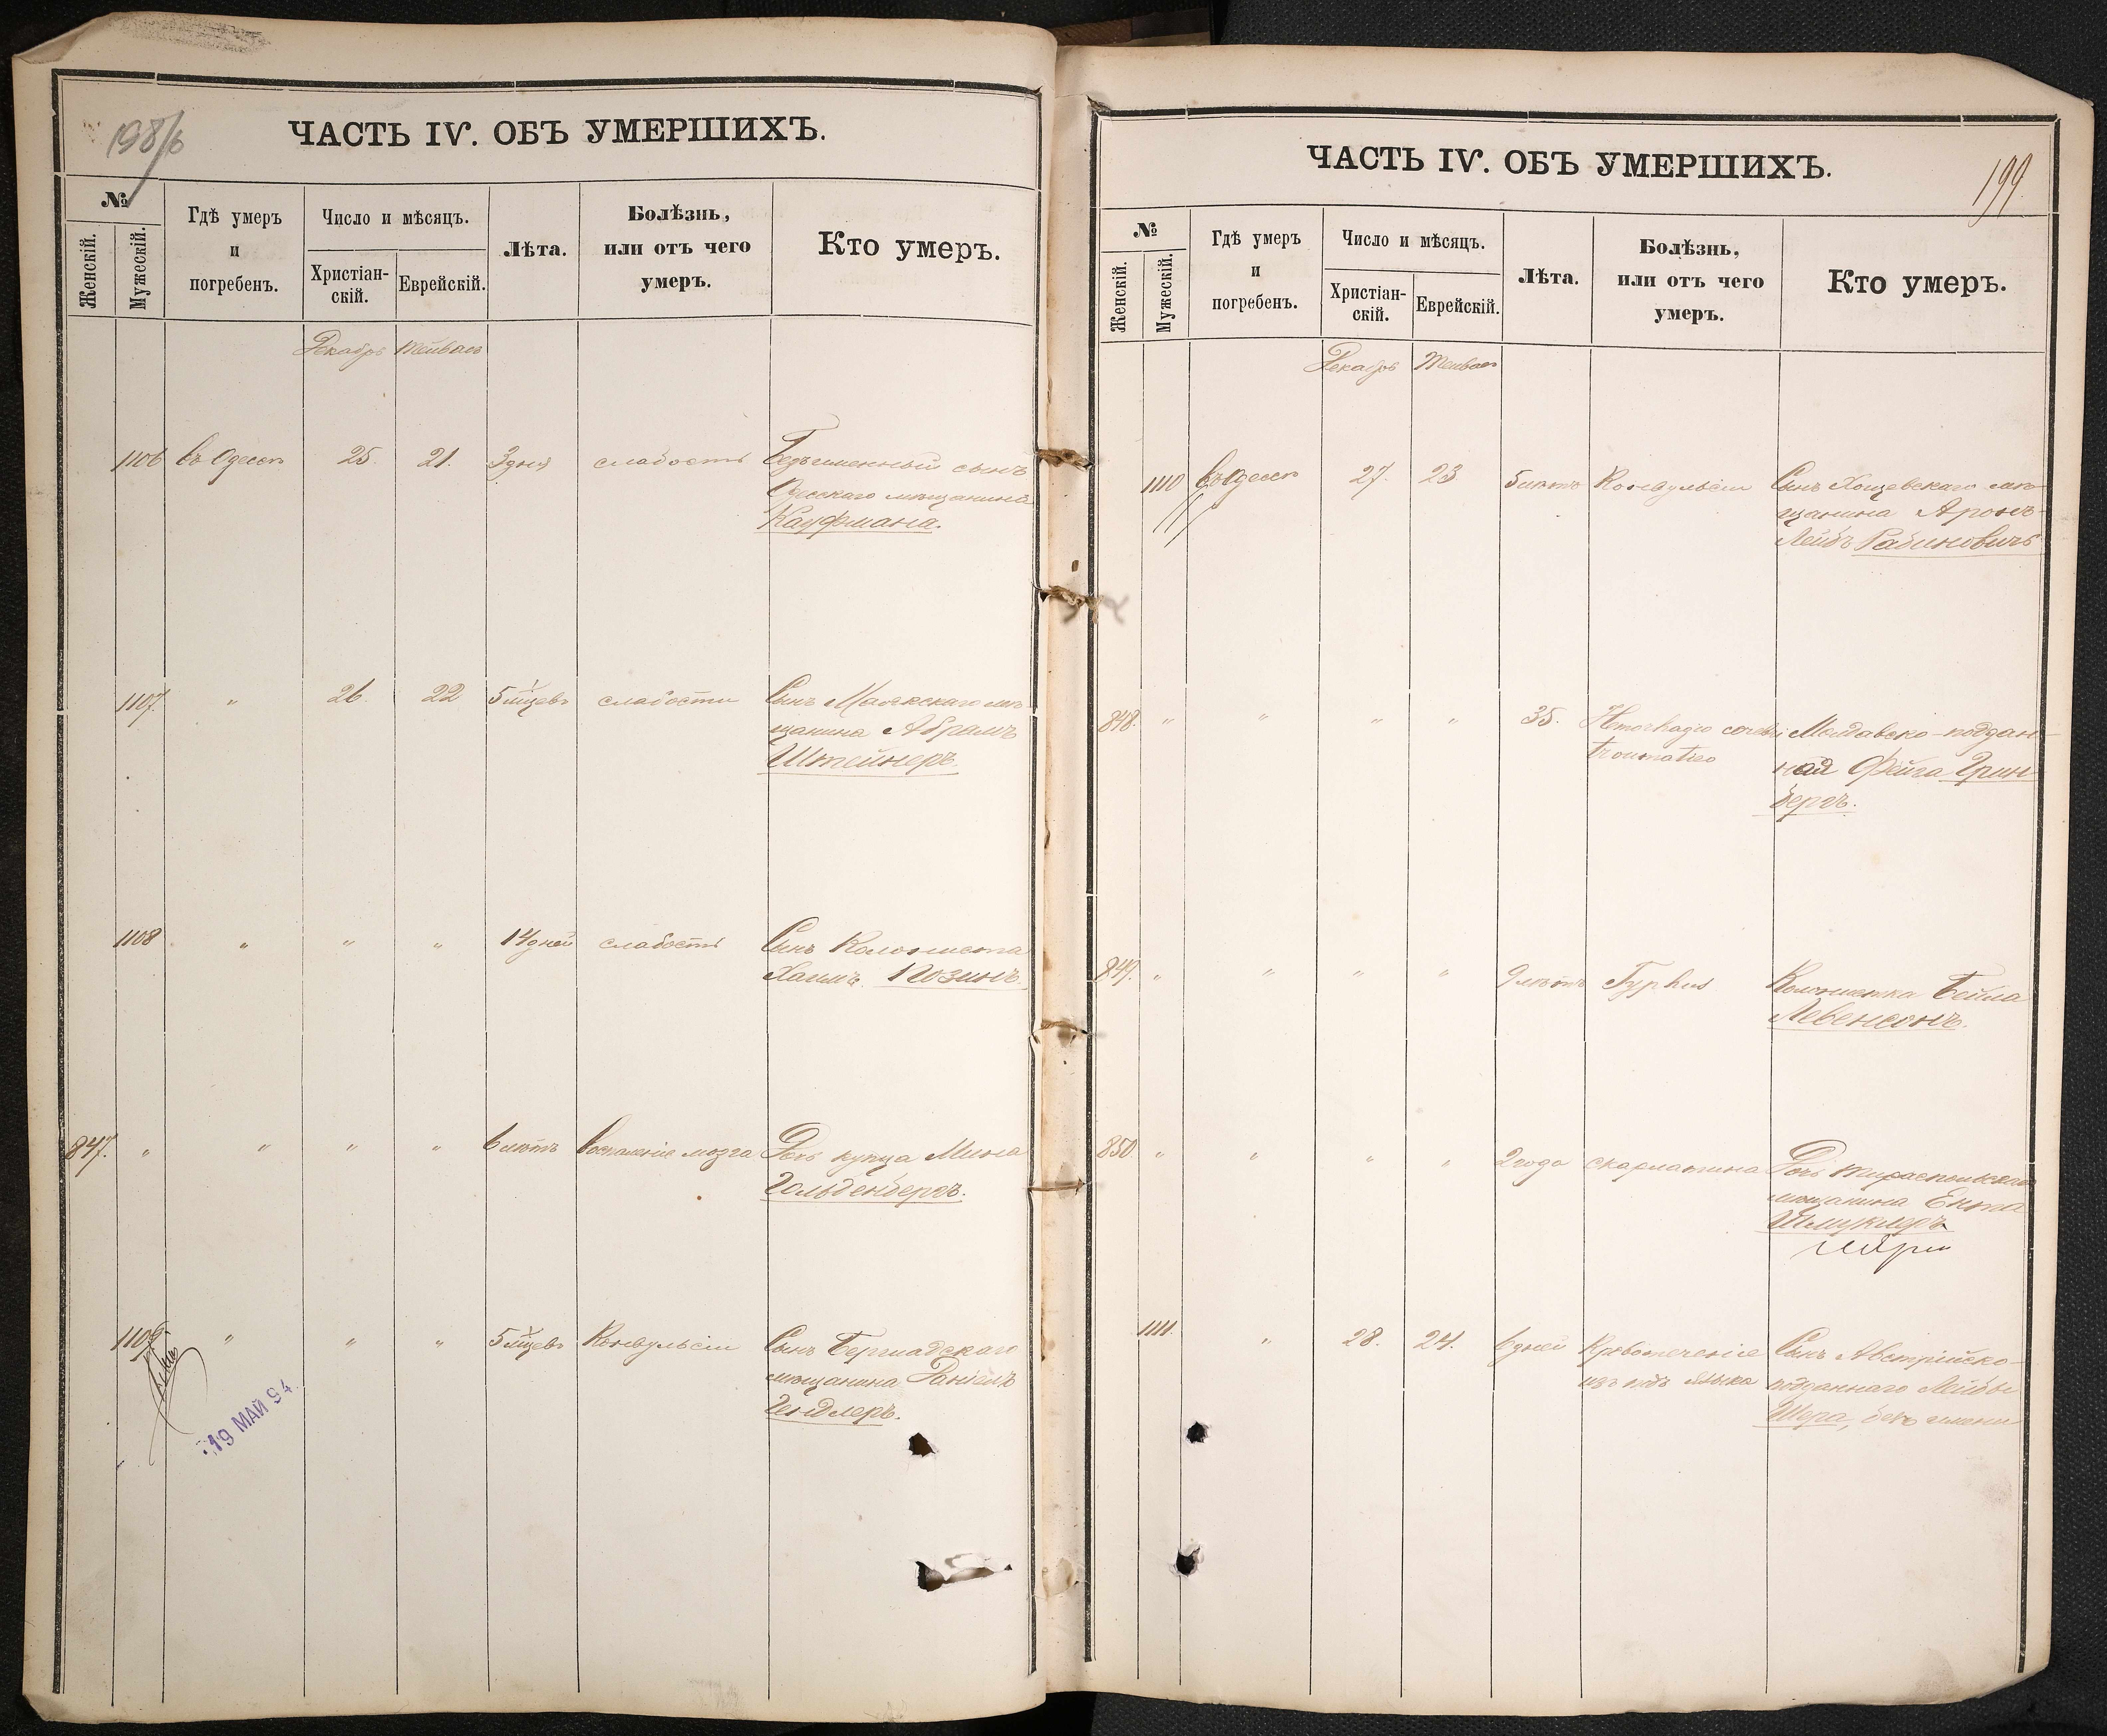 198/б
ЧАСТЬ IV. ОБЪ УМЕРШИХЪ.
№
Женскій.
Мужескій.
Гдѣ умеръ
и
погребенъ.
Число и мѣсяцъ.
Христіан-
скій.
Еврейскій.
Лѣта.
Болѣзнь,
или отъ чего
умеръ.
Кто умеръ.
Декабрь Тейвасъ
1106 въ Одессѣ 25. 21. 3 дня слабость Безъименный сынъ
Одесскаго мѣщанина
Кауфмана.
1107. " 26. 22 5 мѣсцевъ слабости Сынъ Маякскаго мѣ
щанина Абрамъ
Штейнеръ.
1108 " " " 14 дней слабость Сынъ Колониста
Хаимъ Розинъ.
847. " " " " 6 лѣтъ воспаленіе мозга Дочь купца Мина
Гольденбергъ.
1109. " " " 5 мѣсцевъ Конвульсіи Сынъ Бершадскаго
мѣщанина Даніелъ
Гендлеръ.
19 МАЙ 94
ЧАСТЬ IV. ОБЪ УМЕРШИХЪ.
199.
№
Женскій.
Мужескій.
Гдѣ умеръ
и
погребенъ.
Число и мѣсяцъ.
Христіан-
скій.
Еврейскій.
Лѣта.
Болѣзнь,
или отъ чего
умеръ.
Кто умеръ.
Декабрь Тейвасъ
1110 въ Одессѣ 27. 23 5 лѣтъ Конвульсіи Сынъ Хощевскаго мѣ-
щанина Аронъ-
Лейбъ Рабиновичъ
848. " " " " 35. Hemorhagio cerebri Молдавско-поддан-
troumatico ная Фейга Грин-
бергъ.
849. " " " " 9 лѣтъ Typhus Колонистка Бейла
Левенсонъ.
850. " " " " 2 года скарлатина Дочь Тираспольскаго
мѣщанина Ента
Шмуклеръ
1111. " 28. 24. 6 дней Кровотеченіе Сынъ Австрійско-
изъ подъ языка подданнаго Лейбы
Шера, безъ имени